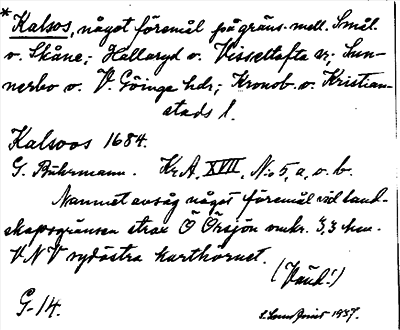 * Kalsos, något föremål på gräns. mell. Smål.
o. Skåne; Hallaryd o. Visseltofta sr; Sun-
nerbo o. V. Göinge hdr; Kronob. o. Kristian-
stads l.
Kalsoos 1684.
G. Buhrmann. Kr.A. XVII, N:o 5, a, o. b.
Namnet avsåg något föremål vid land-
skapsgränsen strax Ö Örsjön omkr. 3,3 km.
VNV sydöstra karthörnet.
G-14. 1937.